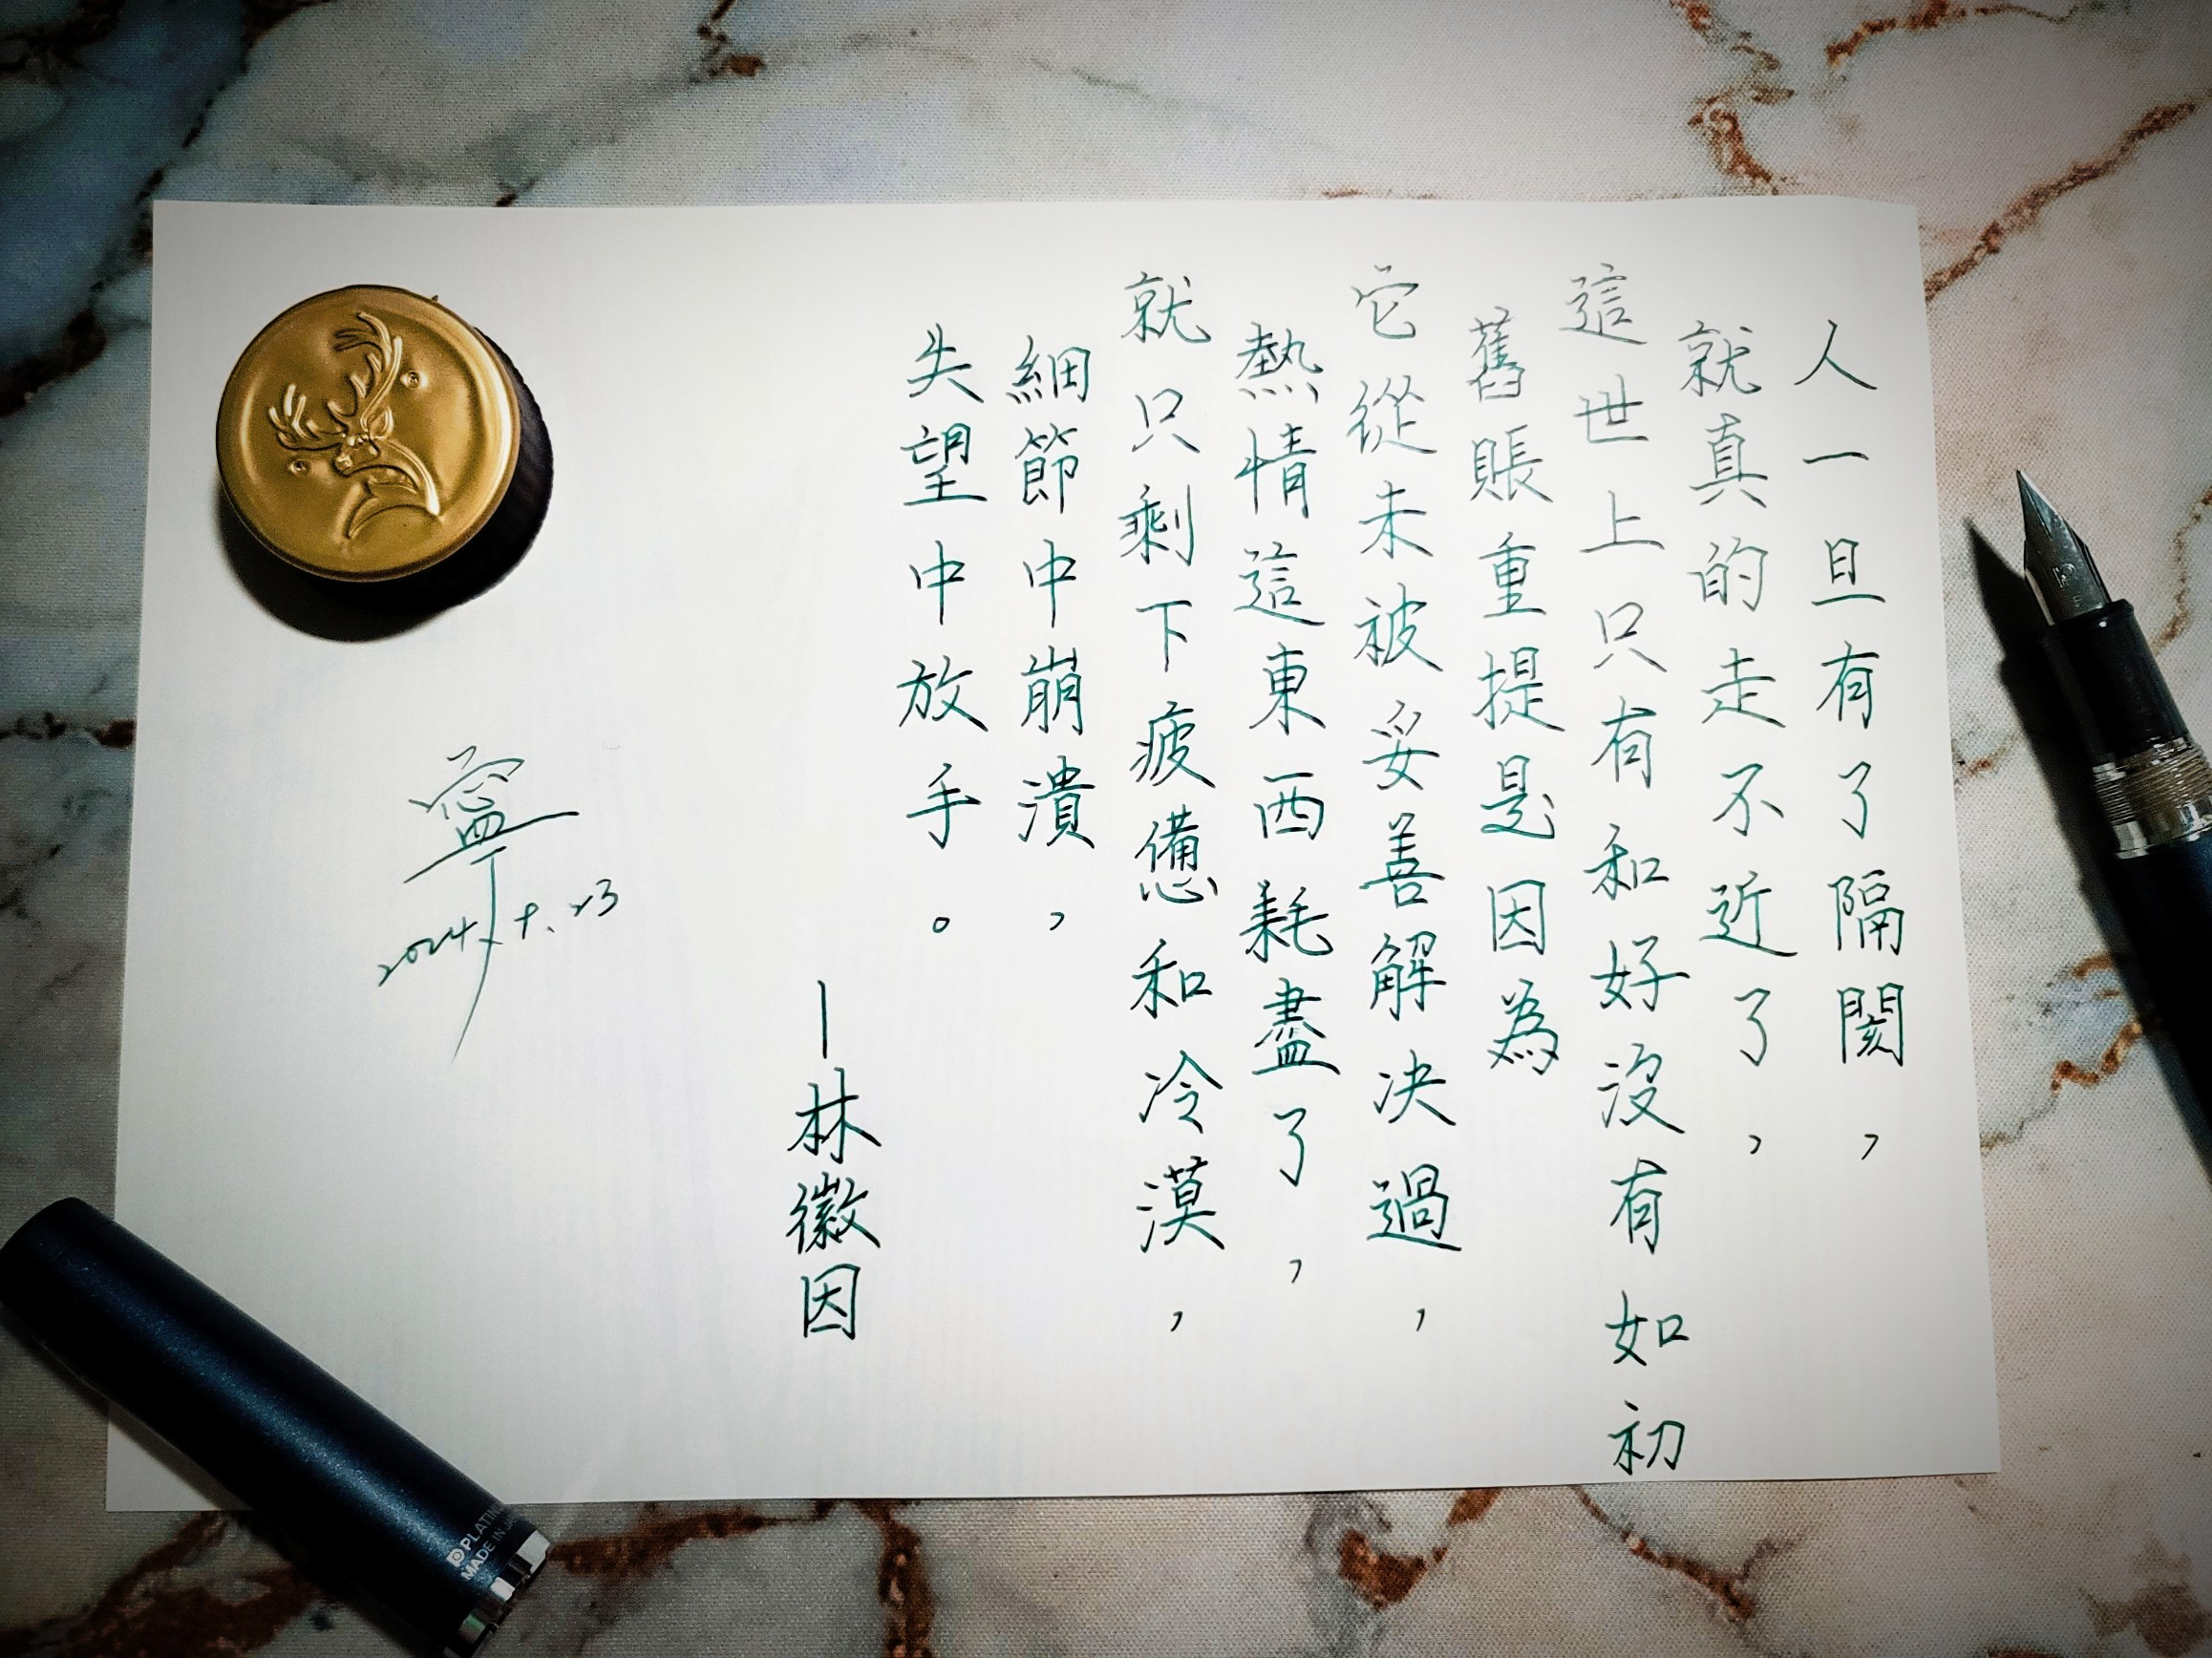 人一旦有了隔閡，
就真的走不近了，
這世上只有和好沒有如初
舊賬重提是因為
它從未被妥善解決過，
熱情這東西耗盡了，
就只剩下疲憊和冷漠，
細節中崩潰，
失望中放手。
—林徽因
寧
PLATINUM
MADE IN